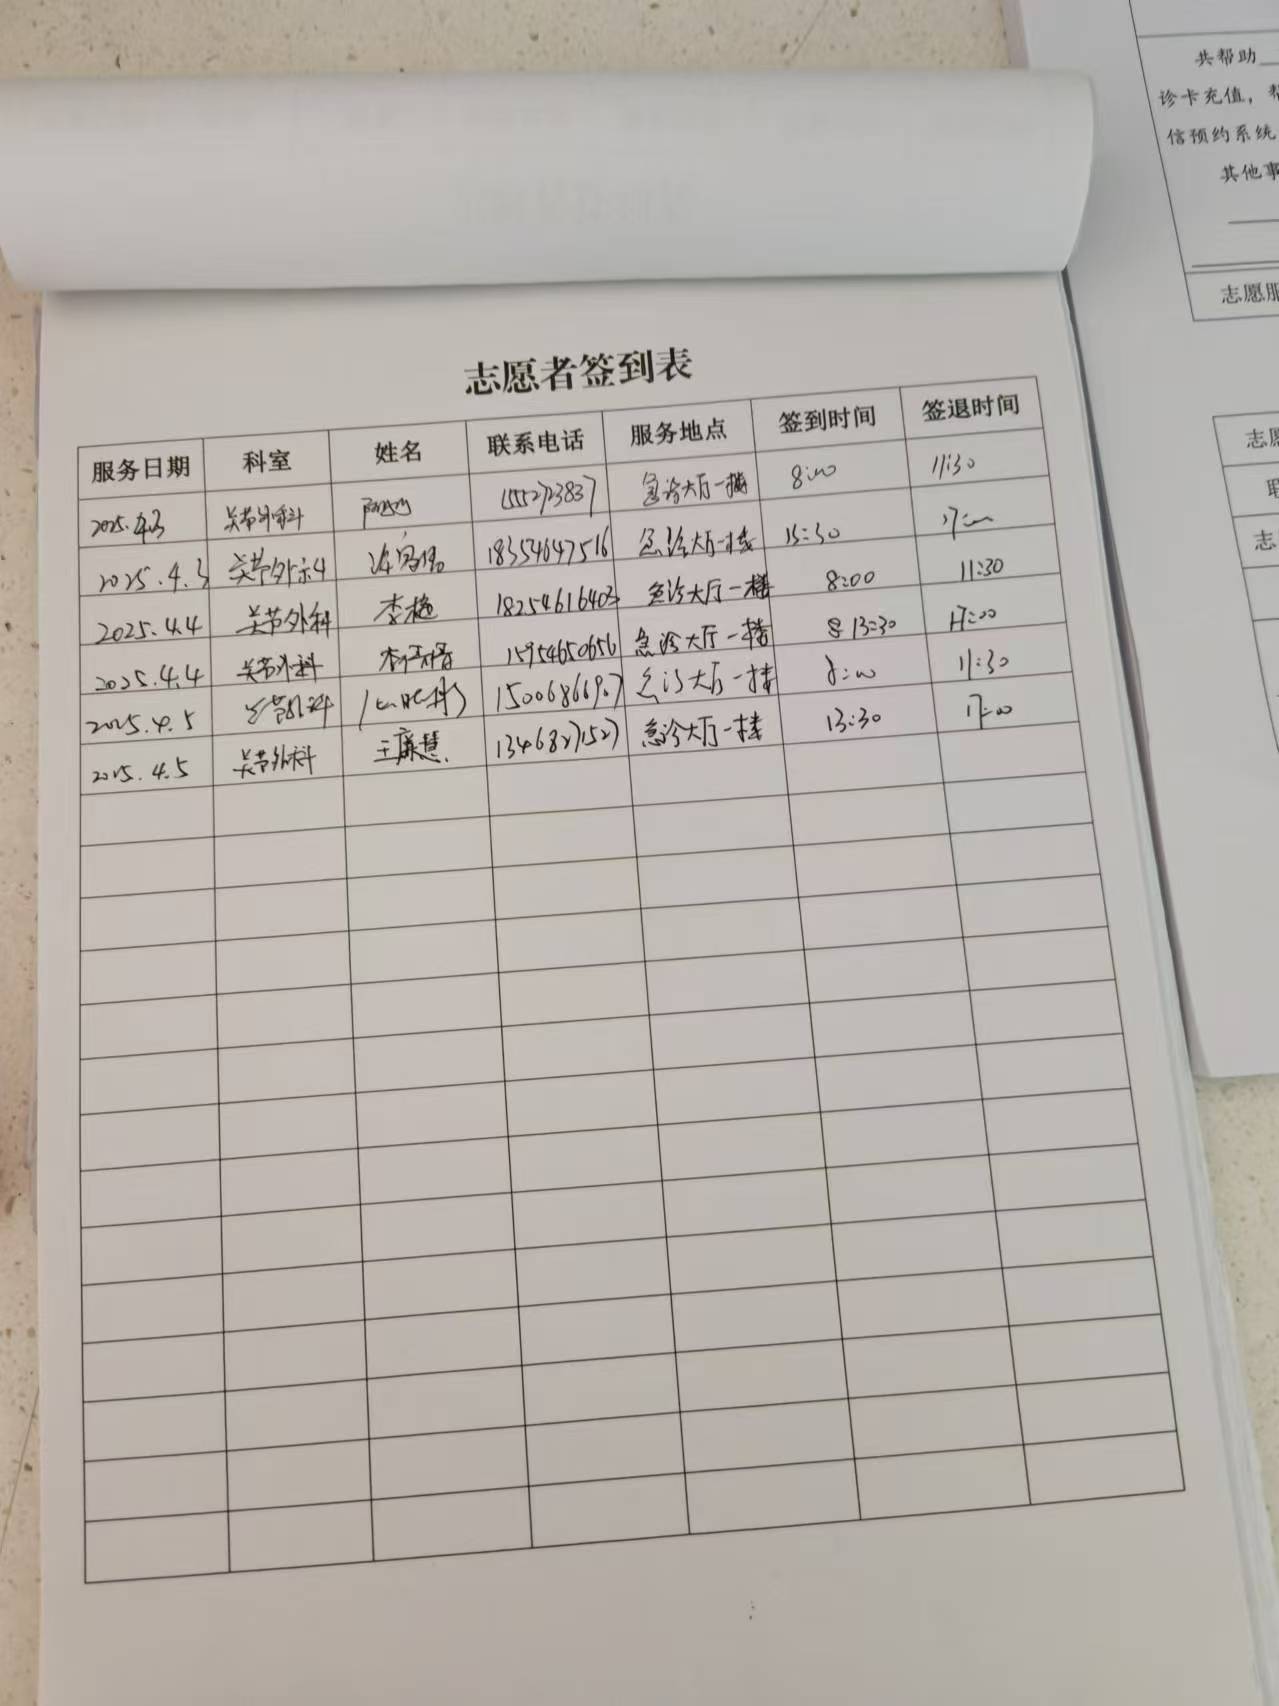 共帮助
诊卡充值，
信预约系统
其他事
志愿服
志愿者签到表
服务日期 科室 姓名 联系电话 服务地点 签到时间 签退时间
2025.4.3 关节外科 急诊大厅一楼 8:00 11:30
2025.4.3 关节外科 18354647516 急诊大厅一楼 13:30 17:00
2025.4.4 关节外科 李艳 18254616403 急诊大厅一楼 8:00 11:30
2025.4.4 关节外科 15954650656 急诊大厅一楼 13:30 17:00
2025.4.5 关节外科 15006866907 急诊大厅一楼 8:00 11:30
2025.4.5 关节外科 王康慧 13468271527 急诊大厅一楼 13:30 17:00
志愿
联
志